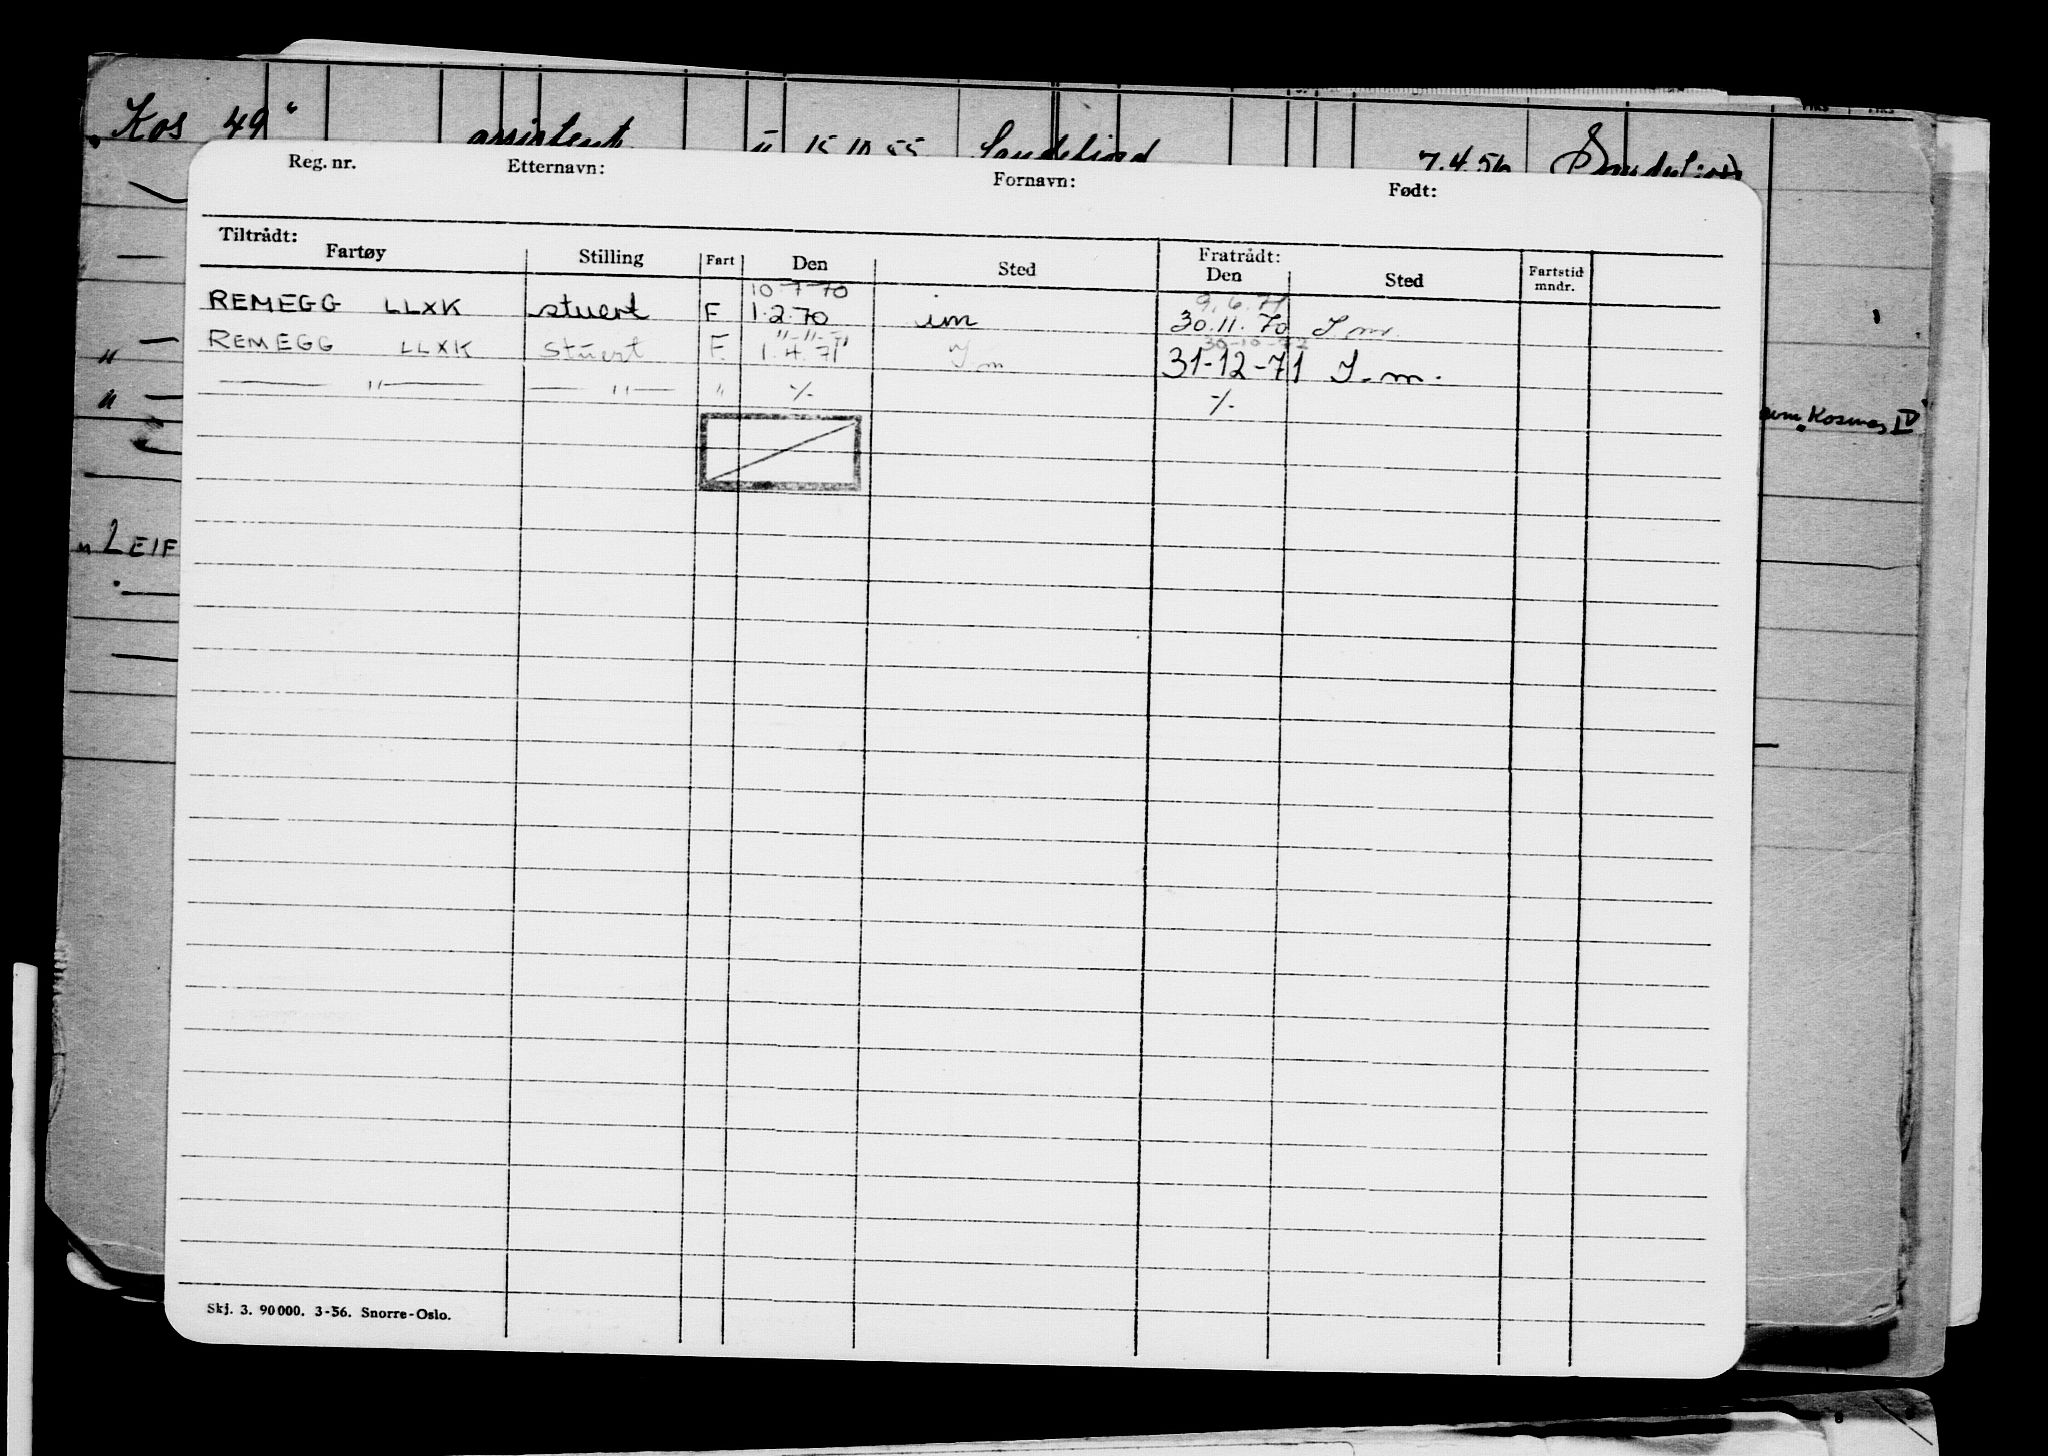 „Kos 49“ assistent " 15.10.55 Sandefjord 7.4.56 Sandefjord
Reg. nr. Etternavn: Fornavn: Født:
Tiltrådt: Fratrådt:
Fartøy Stilling Fart Den Sted Den Sted Fartstid mndr.
10-7-70 9.6.71
REMEGG LLXK stuert F 1.2.70 im 30.11.70 I.m.
"-11-71 30-10-72
REMEGG LLXK stuert F. 1.4.71 I m 31-12-71 I.m.
— " — — " — " ⁒ ⁒
„ —
„ — „Kosmos IV“
„LEIF
Skj. 3. 90000. 3-56. Snorre-Oslo.